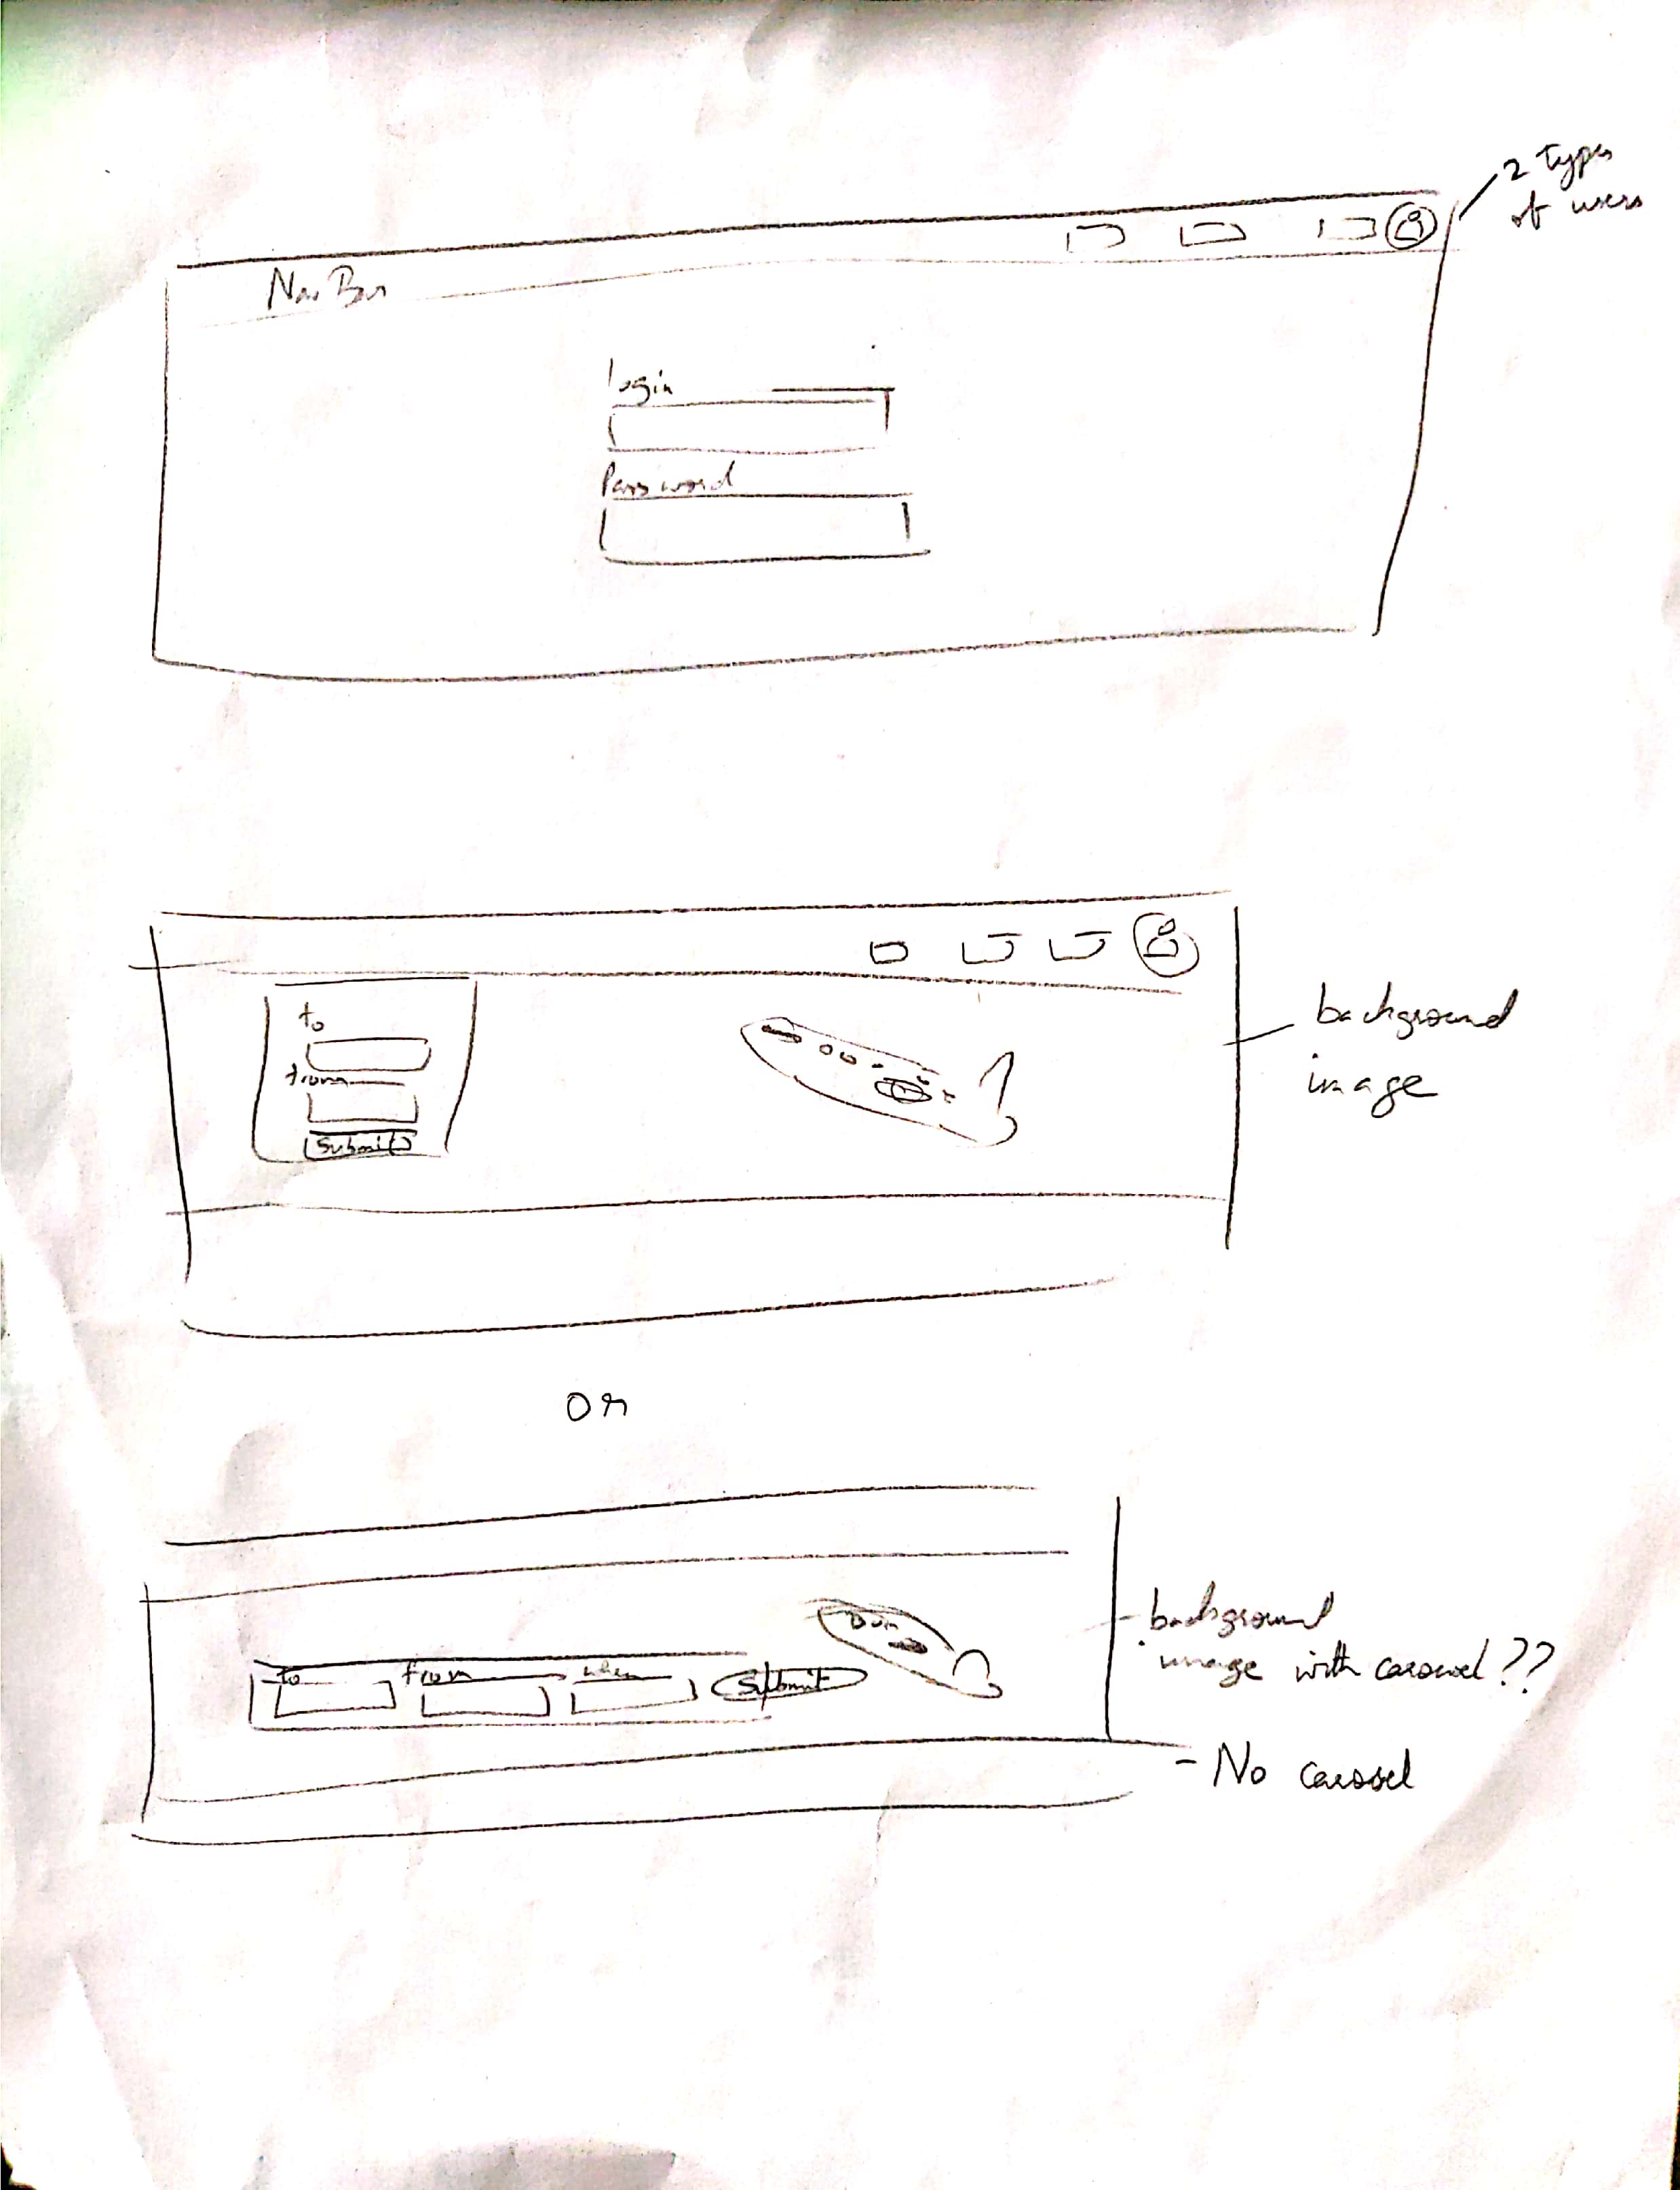 2 types
of users
Nav Bar
login
Password
to
from
Submit
background
image
or
to from when Submit
background
image with carousel ??
- No carosel